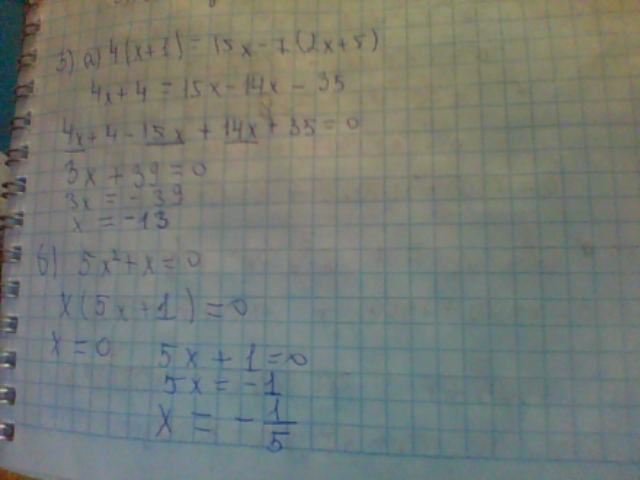 3) а) 4(x+1) = 15x - 7(2x+5)
4x+4 = 15x - 14x - 35
4x+4 - 15x + 14x + 35 = 0
3x + 39 = 0
3x = - 39
x = -13
б) 5x²+x=0
x(5x+1)=0
x=0 5x+1=0
5x = -1
x = - 1/5